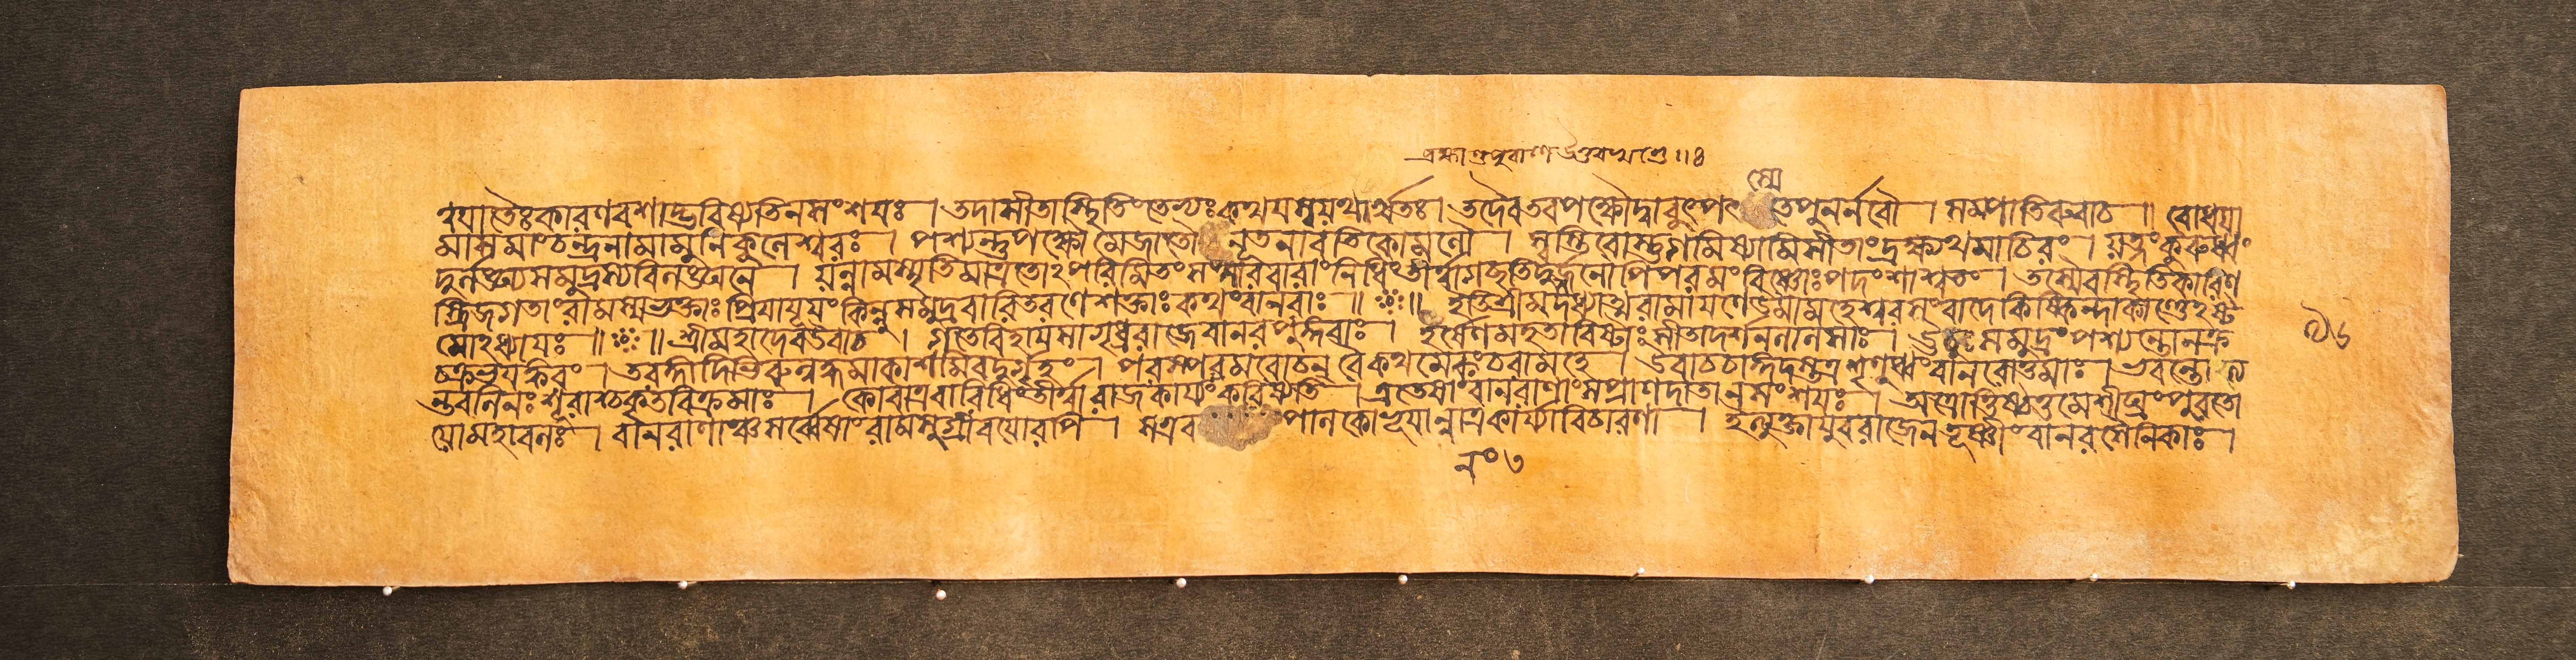 ব্রহ্মাণ্ডপুরাণে উত্তরখণ্ডে ॥৪
স্যে
হ্যাতৈঃ কারণবশাদ্ভবিষ্যতি ন সংশয়ঃ । তদা সীতাস্থিতিং তেভ্যঃ কথয়স্ব যথার্থতঃ । তদৈব তব পক্ষৌ দ্বাবুৎপৎ তে পুনর্নবৌ । সম্পাতিরুবাচ ॥ বোধয়া
মাস মাং চন্দ্রনামা মুনিকুলেশ্বরঃ । পশ্যন্তু পক্ষৌ মে জাতৌ নূতনাবতিকোমলৌ । স্বস্তি বোস্তু গমিষ্যামি সীতাং দ্রক্ষ্যথ মাচিরং । যত্নং কুরুধ্বং
দুর্লঙ্ঘ্যসমুদ্রস্য বিলঙ্ঘনে । যন্নামস্মৃতিমাত্রতোঽপরিমিতং সংসারবারাংনিধিং তীর্ত্বা গচ্ছতি দুর্জনোপি পরমং বিষ্ণোঃ পদং শাশ্বতং । তস্যৈব স্থিতিকারিণ
স্ত্রিজগতাং রামস্য ভক্তাঃ প্রিয়া যূয়ং কিন্ন সমুদ্রবারিতরণে শক্তাঃ কথং বানরাঃ ॥ ॥ ইতি শ্রীমদধ্যাত্মরামায়ণে উমামহেশ্বরসংবাদে কিষ্কিন্দাকাণ্ডেঽষ্ট
মোঽধ্যায়ঃ ॥ ॥ শ্রীমহাদেব উবাচ । গতে বিহায়সা গৃধ্ররাজে বানরপুঙ্গবাঃ । হর্ষেণ মহতাবিষ্টাঃ সীতাদর্শনলালসাঃ । ঊচুঃ সমুদ্রং পশ্যন্তো নক্র
চক্রভয়ঙ্করং । তরঙ্গাদিভিরুন্নদ্ধমাকাশমিব দুর্গ্রহং । পরস্পরমবোচন্ বৈ কথমেকং চরামহে । উবাচ চাঙ্গদস্তত্র শৃণুধ্বং বানরোত্তমাঃ । ভবন্তোত্য
ন্তবলিনঃ শূরাশ্চ কৃতবিক্রমাঃ । কো বাত্র বারিধিং তীর্ত্বা রাজকার্য্যং করিষ্যতি । এতেষাং বানরাণাং স প্রাণদাতা ন সংশয়ঃ । অত্রোত্তিষ্ঠতু মে শীঘ্রং পুরতো
যো মহাবলঃ । বানরাণাঞ্চ সর্ব্বেষাং রামসুগ্রীবয়োরপি । স এব পালকো ভূয়ান্নাত্র কার্য্যা বিচারণা । ইত্যুক্তা যুবরাজেন তূষ্ণীং বানরসৈনিকাঃ ।